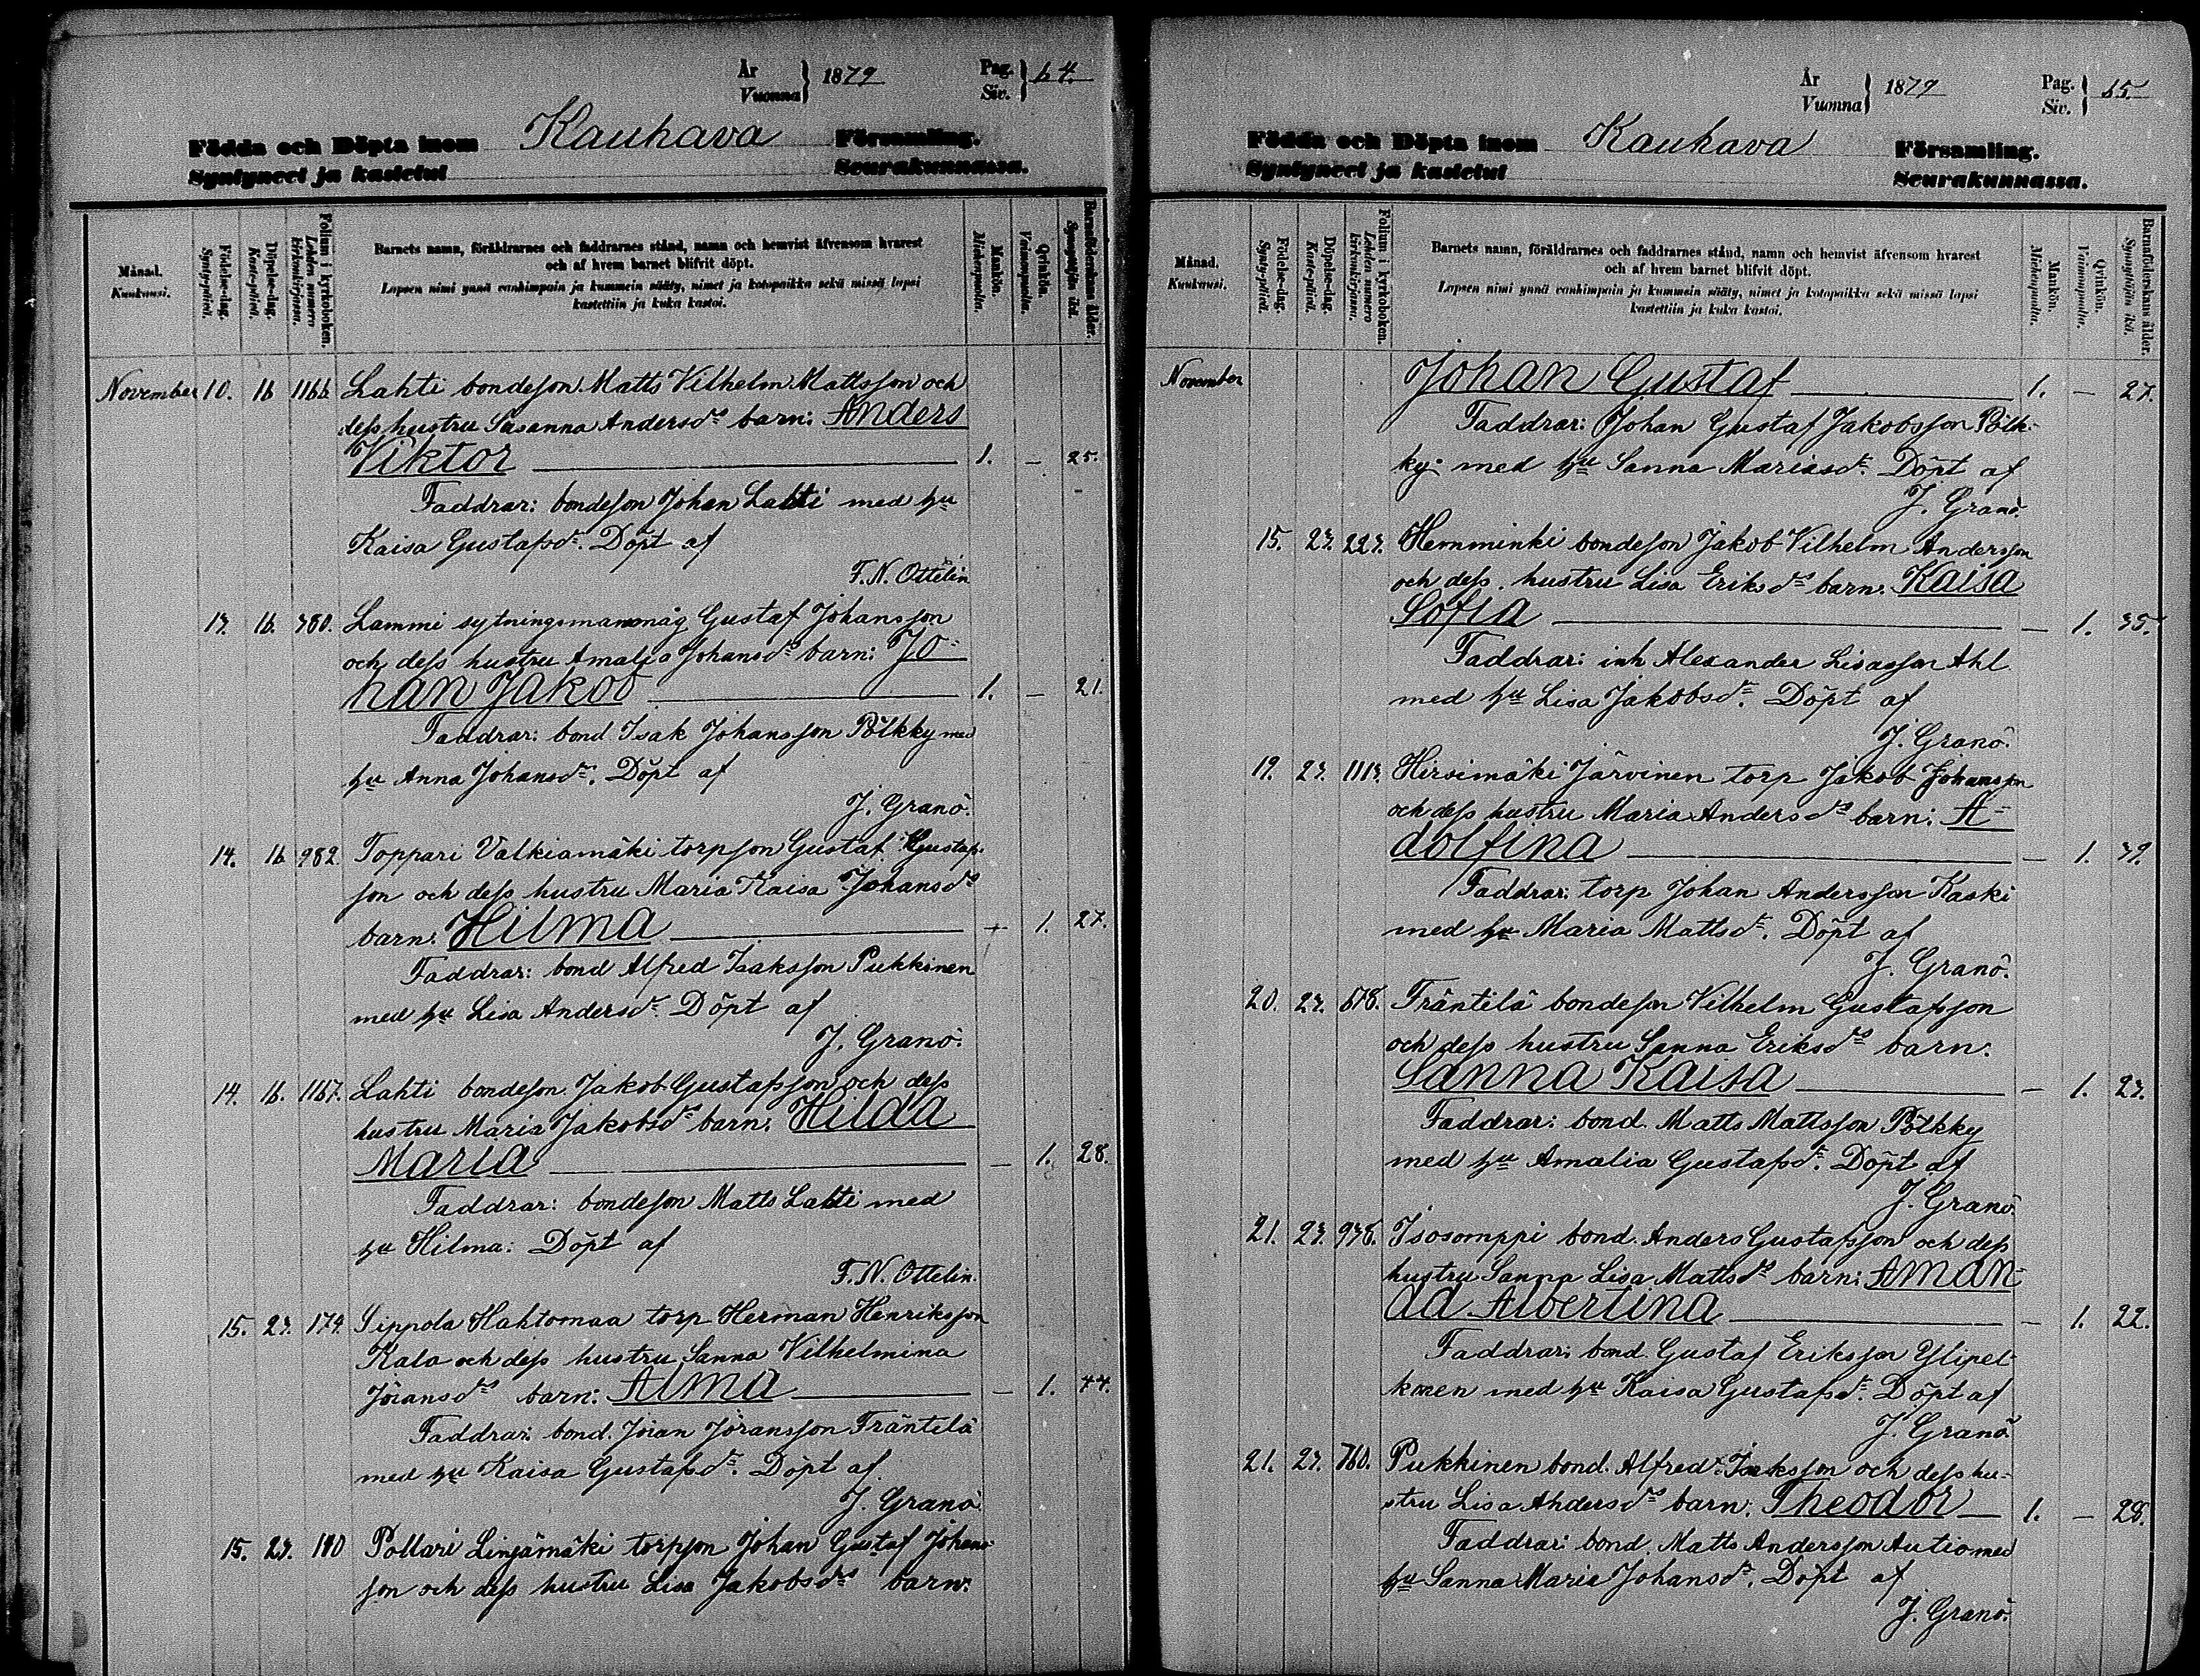 År
Vuonna } 1879
Pag.
Siv. } 64.
Födda och Döpta inom Kauhava Församling.
Syntyneet ja kastetut Seurakunnassa.
Månad.
Kuukausi.
Födelse-dag.
Synty-päivä.
Döpelse-dag.
Kaste-päivä.
Folium i kyrkoboken.
Lehden numero kirkonkirjassa.
Barnets namn, föräldrarnes och faddrarnes stånd, namn och hemvist äfvensom hvarest
och af hvem barnet blifvit döpt.
Lapsen nimi ynnä vanhimpain ja kummein sääty, nimet ja kotopaikka sekä missä lapsi
kastettiin ja kuka kastoi.
Mankön.
Miehenpuolia.
Qvinkön.
Vaimonpuolia.
Barnaföderskans ålder.
Synnyttäjän ikä.
November 10. 16 1166. Lahti bondeson Matts Vilhelm Mattsson och
dess hustru Susanna Andersdr barn: Anders
Viktor 1. — 25.
Faddrar: bondeson Johan Lahti med hu
Kaisa Gustafsdr. Döpt af
F. N. Ottelin
13. 16. 780. Lammi sytningsmanmåg Gustaf Johansson
och dess hustru Amalia Johansdr barn: Jo-
han Jakob 1. — 21.
Faddrar: bond Isak Johansson Pölkky med
hu Anna Johansdr. Döpt af
J. Granö.
14. 16 982. Toppari Valkiamäki torpson Gustaf Gustafs-
son och dess hustru Maria Kaisa Johansdr
barn: Hilma — 1. 27.
Faddrar: bond Alfred Isaksson Pukkinen
med hu Lisa Andersdr. Döpt af
J. Granö.
14. 16. 1167. Lahti bondeson Jakob Gustafsson och dess
hustru Maria Jakobsdr barn: Hilda
Maria — 1. 28.
Faddrar: bondeson Matts Lahti med
hu Hilma: Döpt af
F. N. Ottelin.
15. 23. 174. Sippola Hahtomaa torp Herman Henriksson
Kala och dess hustru Sanna Vilhelmina
Jöransdr barn: Alma — 1. 44.
Faddrar: bond. Jöran Jöransson Fräntilä
med hu Kaisa Gustafsdr. Döpt af
J. Granö
15. 23. 140 Pollari Linjamäki torpson Johan Gustaf Johans-
son och dess hustru Lisa Jakobsdr barn:
År
Vuonna } 1879
Pag.
Siv. } 65.
Födda och Döpta inom Kauhava Församling.
Syntyneet ja kastetut Seurakunnassa.
Månad.
Kuukausi.
Födelse-dag.
Synty-päivä.
Döpelse-dag.
Kaste-päivä.
Folium i kyrkoboken.
Lehden numero kirkonkirjassa.
Barnets namn, föräldrarnes och faddrarnes stånd, namn och hemvist äfvensom hvarest
och af hvem barnet blifvit döpt.
Lapsen nimi ynnä vanhimpain ja kummein sääty, nimet ja kotopaikka sekä missä lapsi
kastettiin ja kuka kastoi.
Mankön.
Miehenpuolia.
Qvinkön.
Vaimonpuolia.
Barnaföderskans ålder.
Synnyttäjän ikä.
November Johan Gustaf 1. — 27.
Faddrar: Johan Gustaf Jakobsson Pölk-
ky med hu Sanna Mariasdr. Döpt af
J. Granö.
15. 23. 223. Hemminki bondeson Jakob Vilhelm Andersson
och dess hustru Lisa Eriksdr barn: Kaisa
Sofia — 1. 35.
Faddrar: inh Alexander Lisasson Ahl
med hu Lisa Jakobsdr. Döpt af
J. Granö.
19. 23. 1113. Hirsimäki Järvinen torp Jakob Johansson
och dess hustru Maria Andersdr barn: A-
dolfina — 1. 39.
Faddrar: torp Johan Andersson Kaski
med hu Maria Mattsdr. Döpt af
J. Granö.
20. 23. 678. Fräntilä bondeson Vilhelm Gustafsson
och dess hustru Sanna Eriksdr barn:
Sanna Kaisa — 1. 23.
Faddrar: bond. Matts Mattsson Pölkky
med hu Amalia Gustafsdr. Döpt af
J. Granö.
21. 23. 938. Isosomppi bond. Anders Gustafsson och dess
hustru Sanna Lisa Mattsdr barn: Aman-
da Albertina — 1. 22.
Faddrar: bond. Gustaf Eriksson Ylipel-
konen med hu Kaisa Gustafsdr. Döpt af
J. Granö
21. 23. 760. Pukkinen bond. Alfred Isaksson och dess hu-
stru Lisa Andersdr barn: Theodor 1. — 28.
Faddrar: bond. Matts Andersson Autio med
hu Sanna Maria Johansdr. Döpt af
J. Granö.